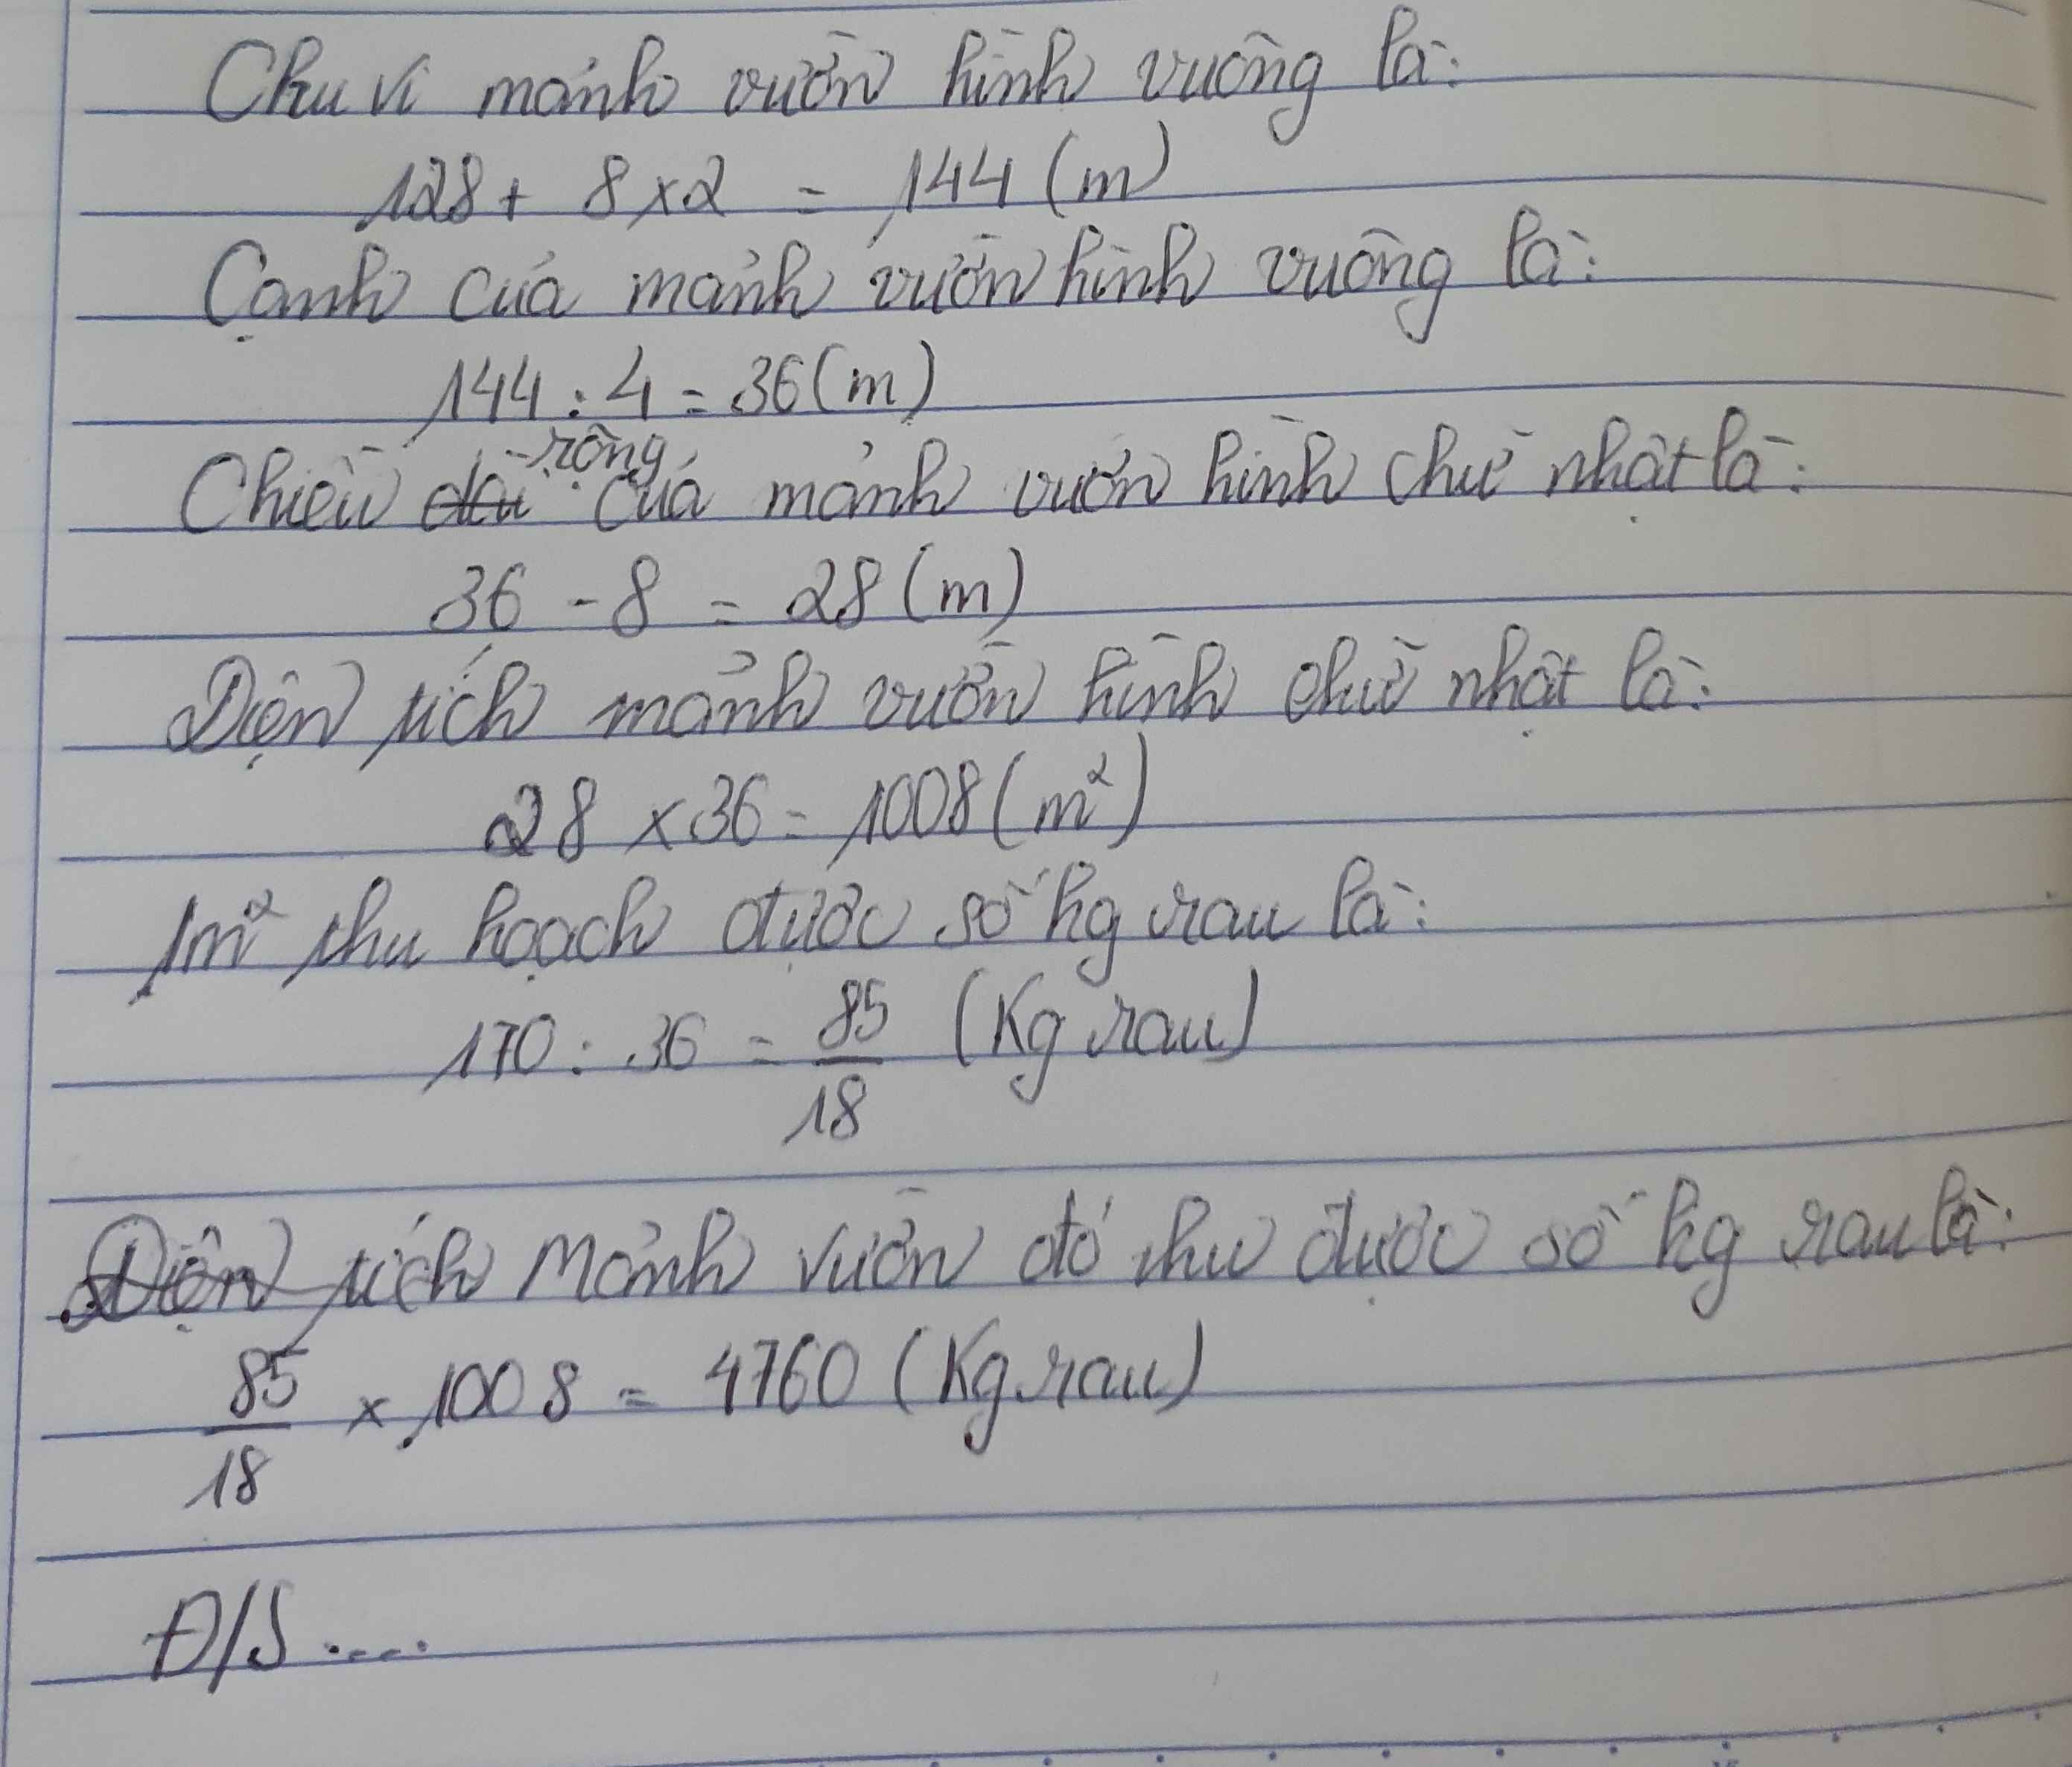 Chu vi mảnh vườn hình vuông là:
128 + 8 x 2 = 144 (m)
Cạnh của mảnh vườn hình vuông là:
144 : 4 = 36 (m)
Chiều dài rộng của mảnh vườn hình chữ nhật là:
36 - 8 = 28 (m)
Diện tích mảnh vườn hình chữ nhật là:
28 x 36 = 1008 (m²)
1m² thu hoạch được số kg rau là:
170 : 36 = 85/18 (Kg rau)
Diện tích Mảnh vườn đó thu được số kg rau là:
85/18 x 1008 = 4760 (Kg rau)
Đ/S ....